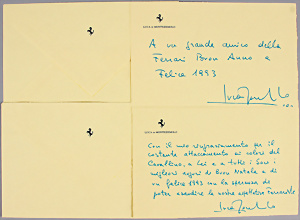 LUCA DI MONTEZEMOLO
A un grande amico della
Ferrari Buon Anno e
Felice 1993
LUCA DI MONTEZEMOLO
Con il mio ringraziamento per il
costante attaccamento ai colori del
Cavallino, a Lei e a tutti i Suoi i
migliori auguri di Buon Natale e di
un felice 1993 con la speranza di
poter esaudire le nostre aspettative Ferrariste